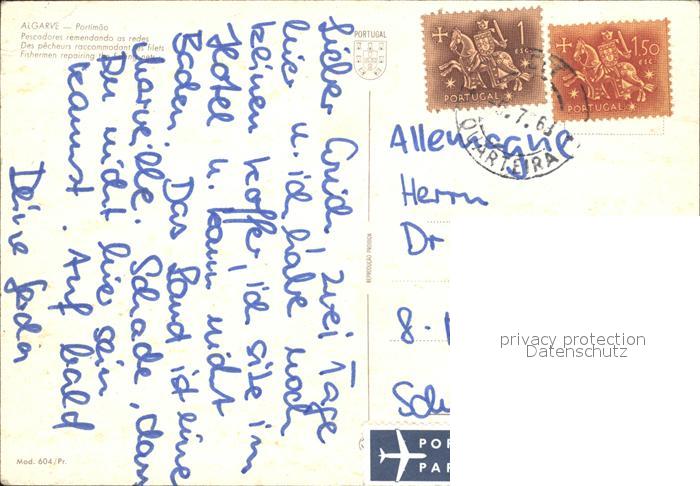 ALGARVE — Portimão
Pescadores remendando as redes
Des pêcheurs raccommodant les filets
Fishermen repairing the fishing nets
PORTUGAL
1
ESC
PORTUGAL
1$50
ESC
PORTUGAL
.7.63
QUARTEIRA
zwei Tage
hier u. ich habe noch
keinen Koffer, ich sitze im
Hotel u. kann nicht
Baden. Das Land ist eine
Schade, dass
Du nicht hier sein
kannst. Auf bald
Deine
REPRODUÇÃO PROIBIDA
Allemagne
Herrn
Dr
8-
Sch
POR
PAR
Mod. 604/Pr.
privacy protection
Datenschutz